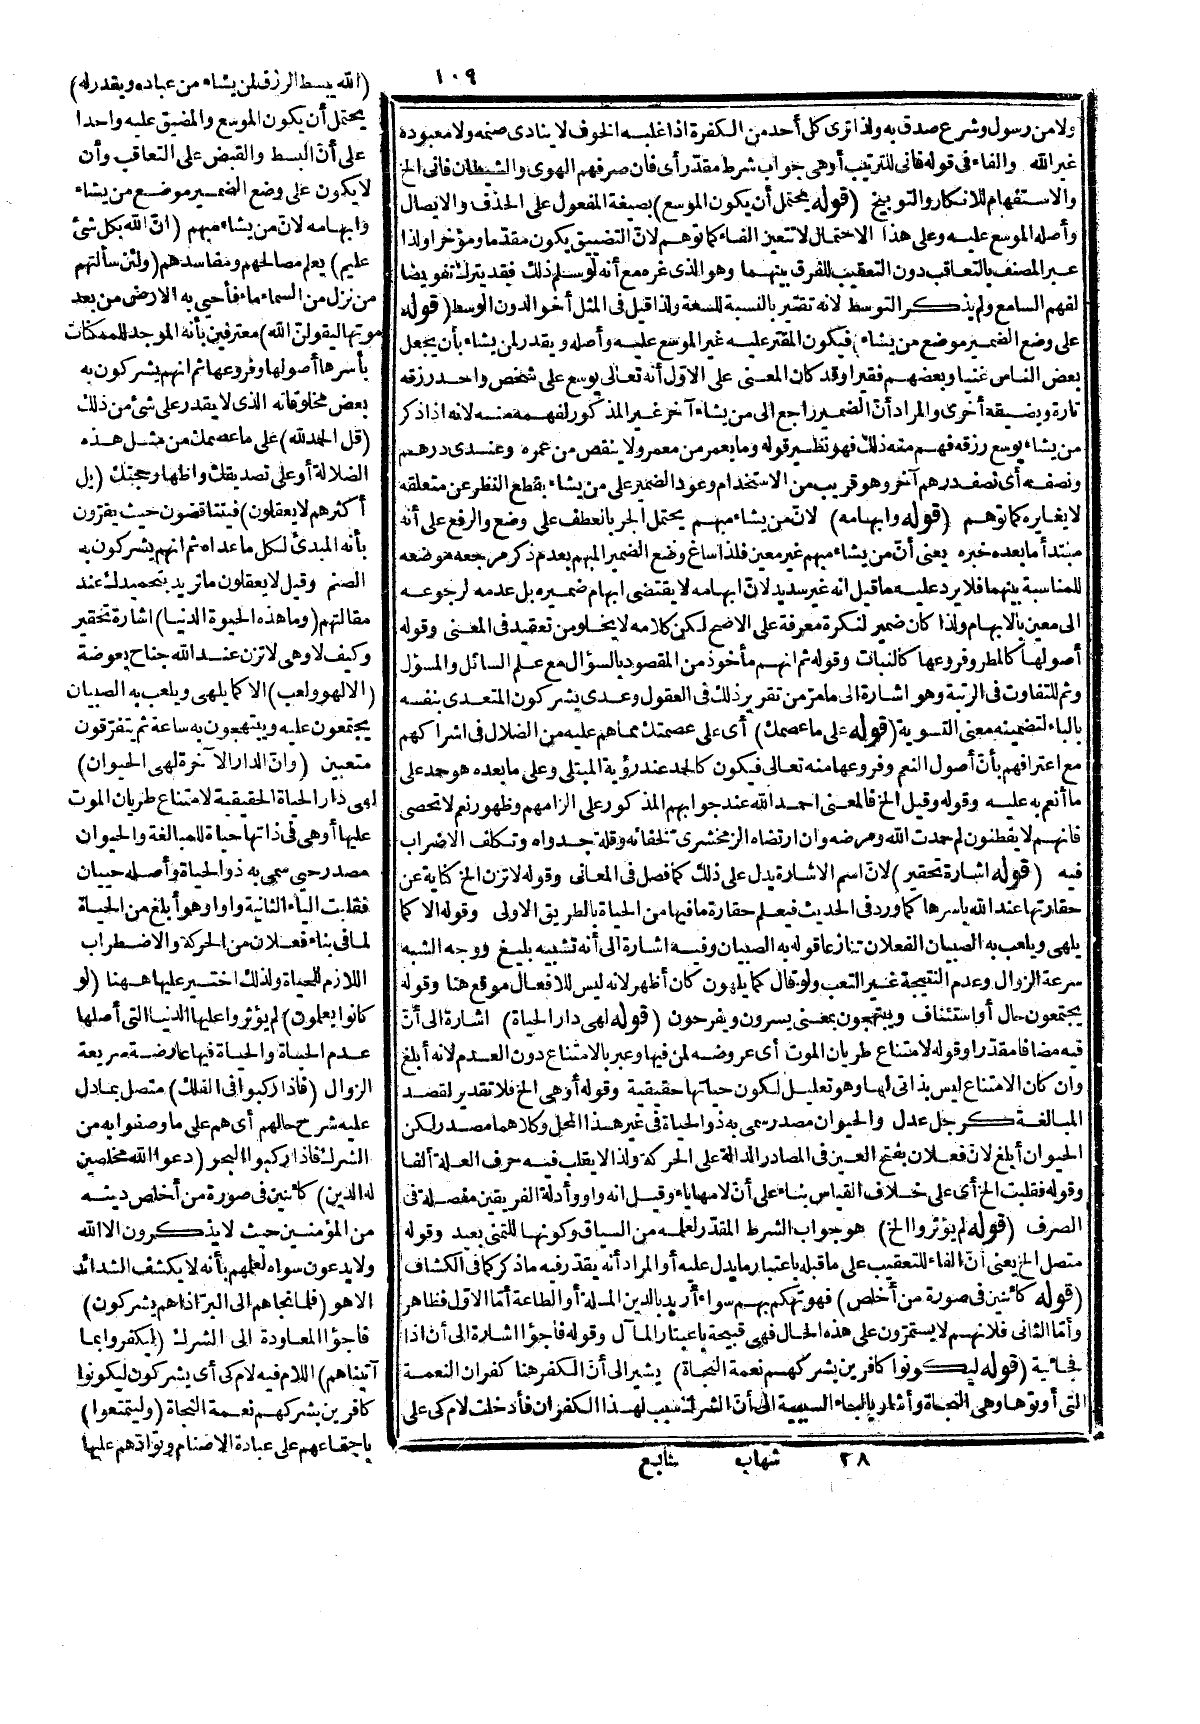 ١٠٩
ولا من رسول وشرع صدق به ولذا ترى كل أحد من الكفرة اذا غلبه الخوف لا ينادى صنمه ولا معبوده
غير الله والفاء فى قوله فانى للترتيب أو هى جواب شرط مقدّر أى فان صرفهم الهوى والشيطان فانى الخ
والاستفهام للانكار والتوبيخ (قوله يحتمل أن يكون الموسع) بصيغة المفعول على الحذف والايصال
وأصله الموسع عليه وعلى هذا الاحتمال لا تتعين الفاء كما توهم لانّ التضييق يكون مقدّما ومؤخرا ولذا
عبر المصنف بالتعاقب دون التعقيب للفرق بينهما وهو الذى غره مع أنه لو سلم ذلك فقد يترك تفويضا
لفهم السامع ولم يذكر التوسط لانه تقتير بالنسبة للسعة ولذا قيل فى المثل أخو الدون الوسط (قوله
على وضع الضمير موضع من يشاء) فيكون المقتر عليه غير الموسع عليه وأصله ويقدر لمن يشاء بأن يجعل
بعض الناس غنيا وبعضهم فقيرا وقد كان المعنى على الاوّل أنه تعالى يوسع على شخص واحد رزقه
تارة ويضيقه أخرى والمراد أنّ الضمير راجع الى من يشاء آخر غير المذكور لفهمه منه لانه اذا ذكر
من يشاء يوسع رزقه فهم منه ذلك فهو نظير قوله وما يعمر من معمر ولا ينقص من عمره وعندى درهم
ونصفه أى نصف درهم آخر وهو قريب من الاستخدام وعود الضمير على من يشاء بقطع النظر عن متعلقه
لا يغايره كما توهم (قوله وابهامه) لانّ من يشاء مبهم يحتمل الجر بالعطف على وضع والرفع على أنه
مبتدأ ما بعده خبره يعنى أنّ من يشاء مبهم غير معين فلذا ساغ وضع الضمير المبهم بعدم ذكر مرجعه موضعه
للمناسبة بينهما فلا يرد عليه ما قيل انه غير سديد لانّ ابهامه لا يقتضى ابهام ضميره بل عدمه لرجوعه
الى معين بالابهام ولذا كان ضمير النكرة معرفة على الاصح لكن كلامه لا يخلو من تعقيد فى المعنى وقوله
أصولها كالمطر وفروعها كالنبات وقوله ثم انهم مأخوذ من المقصود بالسؤال مع علم السائل والمسؤل
وثم للتفاوت فى الرتبة وهو اشارة الى ما مرّ من تقرير ذلك فى العقول وعدى يشركون المتعدى بنفسه
بالباء لتضمينه معنى التسوية (قوله على ما عصمك) أى على عصمتك مما هم عليه من الضلال فى اشراكهم
مع اعترافهم بأنّ أصول النعم وفروعها منه تعالى فيكون كالحمد عند رؤية المبتلى وعلى ما بعده هو حمد على
ما أنعم به عليه وقوله وقيل الخ فالمعنى احمد الله عند جوابهم المذكور على الزامهم وظهور نعم لا تحصى
فانهم لا يفطنون لم حمدت الله ومرضه وان ارتضاه الزمخشرى لخفائه وقلة جدواه وتكلف الاضراب
فيه (قوله اشارة تحقير) لانّ اسم الاشارة يدل على ذلك كما فصل فى المعانى وقوله لا تزن الخ كناية عن
حقارتها عند الله بأسرها كما ورد فى الحديث فيعلم حقارة ما فيها من الحياة بالطريق الاولى وقوله الا كما
يلهى ويلعب به الصبيان الفعلان تنازعا قوله به الصبيان وفيه اشارة الى أنه تشبيه بليغ ووجه الشبه
سرعة الزوال وعدم النتيجة غير التعب ولو قال كما يلهون كان أظهر لانه ليس للافعال موقع هنا وقوله
يجتمعون حال أو استئناف ويبتهجون بمعنى يسرون ويفرحون (قوله لهى دار الحياة) اشارة الى أنّ
فيه مضافا مقدرا وقوله لامتناع طريان الموت أى عروضه لمن فيها وعبر بالامتناع دون العدم لانه أبلغ
وان كان الامتناع ليس بذاتى لها وهو تعليل لكون حياتها حقيقية وقوله أو هى الخ فلا تقدير لقصد
المبالغة كرجل عدل والحيوان مصدر سمى به ذو الحياة فى غير هذا المحل وكلاهما مصدر لكن
الحيوان أبلغ لانّ فعلان بفتح العين فى المصادر الدالة على الحركة ولذا لا يقلب فيه حرف العلة ألفا
وقوله فقلبت الخ أى على خلاف القياس بناء على أنّ لامها ياء وقيل انه واو وأدلة الفريقين مفصلة فى
الصرف (قوله لم يؤثروا الخ) هو جواب الشرط المقدّر لعلمه من السياق وكونها للتمنى بعيد وقوله
متصل الخ يعنى أنّ الفاء للتعقيب على ما قبله باعتبار ما يدل عليه أو المراد أنه يقدر فيه ما ذكر كما فى الكشاف
(قوله كائنين فى صورة من أخلص) فهو تهكم بهم سواء أريد بالدين الملة أو الطاعة أمّا الاوّل فظاهر
وأمّا الثانى فلانهم لا يستمرّون على هذه الحال فهى قبيحة باعتبار المآل وقوله فاجؤا اشارة الى أن اذا
فجائية (قوله ليكونوا كافرين بشركهم نعمة النجاة) يشير الى أنّ الكفر هنا كفران النعمة
التى أوتوها وهى النجاة وأشار بالباء السببية الى أنّ الشرك سبب لهذا الكفران فأدخلت لام كى على
(الله يبسط الرزق لمن يشاء من عباده ويقدر له)
يحتمل أن يكون الموسع والمضيق عليه واحدا
على أنّ البسط والقبض على التعاقب وأن
لا يكون على وضع الضمير موضع من يشاء
وابهامه لانّ من يشاء مبهم (انّ الله بكل شئ
عليم) يعلم مصالحهم ومفاسدهم (ولئن سألتهم
من نزل من السماء ماء فأحيى به الارض من بعد
موتها ليقولنّ الله) معترفين بأنه الموجد للممكنات
بأسرها أصولها وفروعها ثم انهم يشركون به
بعض مخلوقاته الذى لا يقدر على شئ من ذلك
(قل الحمد لله) على ما عصمك من مثل هذه
الضلالة أو على تصديقك واظهار حجتك (بل
أكثرهم لا يعقلون) فيتناقضون حيث يقرّون
بأنه المبدئ لكل ما عداه ثم انهم يشركون به
الصنم وقيل لا يعقلون ما تريد بتحميدك عند
مقالتهم (وما هذه الحيوة الدنيا) اشارة تحقير
وكيف لا وهى لا تزن عند الله جناح بعوضة
(الا لهو ولعب) الا كما يلهى ويلعب به الصبيان
يجتمعون عليه ويبتهجون به ساعة ثم يتفرّقون
متعبين (وانّ الدار الآخرة لهى الحيوان)
لهى دار الحياة الحقيقية لامتناع طريان الموت
عليها أو هى فى ذاتها حياة للمبالغة والحيوان
مصدر حيى سمى به ذو الحياة وأصله حييان
فقلبت الياء الثانية واوا وهو أبلغ من الحياة
لما فى بناء فعلان من الحركة والاضطراب
اللازم للحياة ولذلك اختير عليها ههنا (لو
كانوا يعلمون) لم يؤثروا عليها الدنيا التى أصلها
عدم الحياة والحياة فيها عارضة سريعة
الزوال (فاذا ركبوا فى الفلك) متصل بما دل
عليه شرح حالهم أى هم على ما وصفوا به من
الشرك فاذا ركبوا البحر (دعوا الله مخلصين
له الدين) كائنين فى صورة من أخلص دينه
من المؤمنين حيث لا يذكرون الا الله
ولا يدعون سواه لعلمهم بأنه لا يكشف الشدائد
الا هو (فلما نجاهم الى البر اذا هم يشركون)
فاجؤا المعاودة الى الشرك (ليكفروا بما
آتيناهم) اللام فيه لام كى أى يشركون ليكونوا
كافرين بشركهم نعمة النجاة (وليتمتعوا)
باجتماعهم على عبادة الاصنام وتوادّهم عليها
٢٨ شهاب سابع